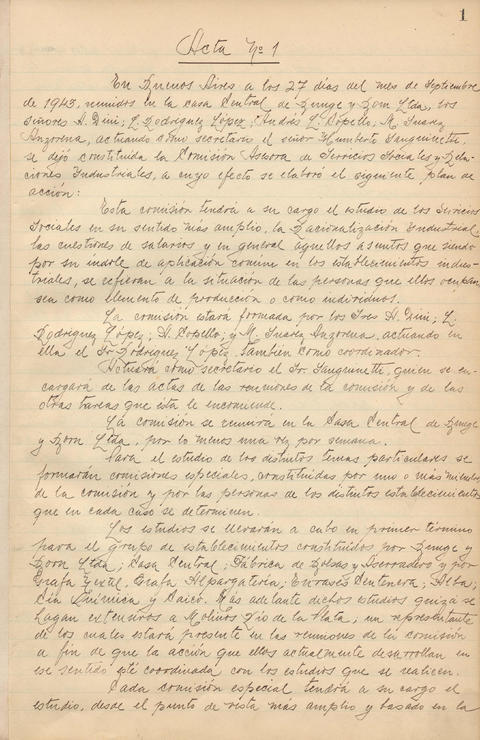 1
Acta Nº 1
En Buenos Aires a los 27 días del mes de Septiembre
de 1943, reunidos en la casa Central de Bunge y Born Ltda, los
señores A. Dini; L. Rodriguez López; Andrés L. Copello; M. Suarez
Anzorena, actuando como secretario el señor Humberto Sanguinetti,
se dejó constituída la Comisión Asesora de Servicios Sociales y Rela-
ciones Industriales, a cuyo efecto se elaboró el siguiente plan de
acción:
Esta comisión tendrá a su cargo el estudio de los Servicios
Sociales en su sentido más amplio, la Racionalización Industrial,
las cuestiones de salarios y en general aquellos asuntos que siendo
por su índole de aplicación común en los establecimientos indus-
triales, se refieran a la situación de las personas que ellos ocupan,
sea como elemento de producción o como individuos.
La comisión estará formada por los Sres A. Dini; L.
Rodriguez López; A. Copello; y M. Suarez Anzorena, actuando en
ella el Sr Rodriguez López, también como coordinador.
Actuará como secretario el Sr. Sanguinetti, quien se en-
cargará de las actas de las reuniones de la comisión y de las
otras tareas que ésta le encomiende.
La comisión se reunirá en la Casa Central de Bunge
y Born Ltda, por lo menos una vez por semana.
Para el estudio de los distintos temas particulares se
formarán comisiones especiales, constituídas por uno o más miembros
de la comisión y por las personas de los distintos establecimientos
que en cada caso se determinen.
Los estudios se llevarán a cabo en primer término
para el grupo de establecimientos constituídos por Bunge y
Born Ltda; Casa Central; Fábrica de Bolsas y Aserradero y por
Grafa Textil, Grafa Alpargatería; Envases Centenera; Alba;
Cía Química y Caicó. Más adelante dichos estudios quizá se
hagan extensivos a Molinos Río de la Plata, un representante
de los cuales estará presente en las reuniones de la comisión
a fin de que la acción que ellos actualmente desarrollan en
ese sentido esté coordinada con los estudios que se realicen.
Cada comisión especial tendrá a su cargo el
estudio, desde el punto de vista más amplio y basado en la